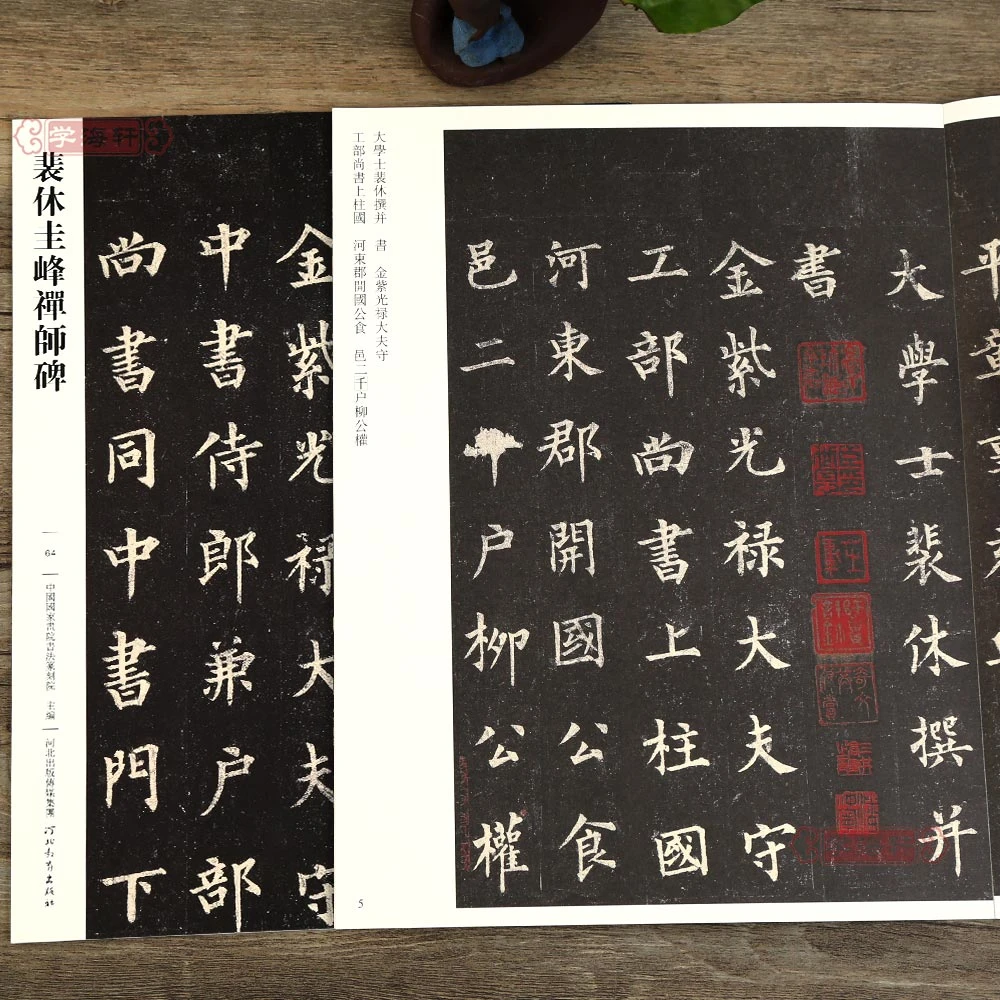 学海轩
裴休圭峰禪師碑
64
中國國家畫院書法篆刻院 主編
河北出版傳媒集團
河北教育出版社
金紫光禄大夫守
中書侍郎兼户部
尚書同中書門下
大學士裴休撰并 書 金紫光禄大夫守
工部尚書上柱國 河東郡開國公食 邑二千户柳公權
5
大學士裴休撰并
書
金紫光禄大夫守
工部尚書上柱國
河東郡開國公食
邑二千户柳公權